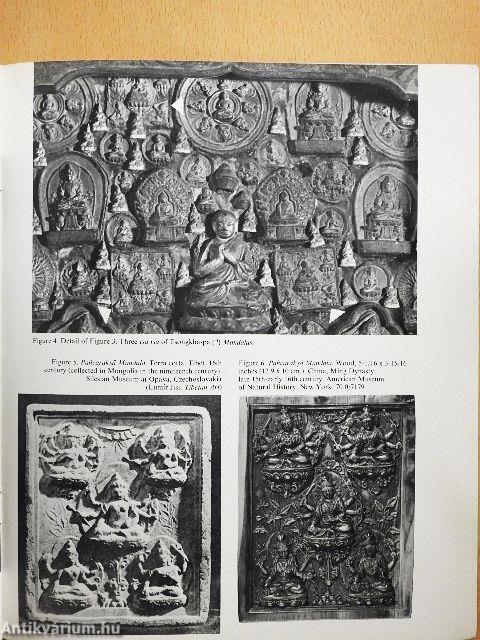 Figure 4. Detail of Figure 3. Three tsa tsa of Tsongkha-pa (?) Mandalas.
Figure 5. Pañcarakṣā Mandala. Terra cotta. Tibet, 16th
century (collected in Mongolia in the nineteenth century).
Silesian Museum at Opava, Czechoslovakia
(Lumír Jisl, Tibetan Art)
Figure 6. Pañcarakṣā Mandala. Wood, 5-1/16 x 3-15/16
inches (12.9 x 10 cm.). China, Ming Dynasty,
late 15th-early 16th century. American Museum
of Natural History, New York. 70.0/7179
Antikvarium.hu